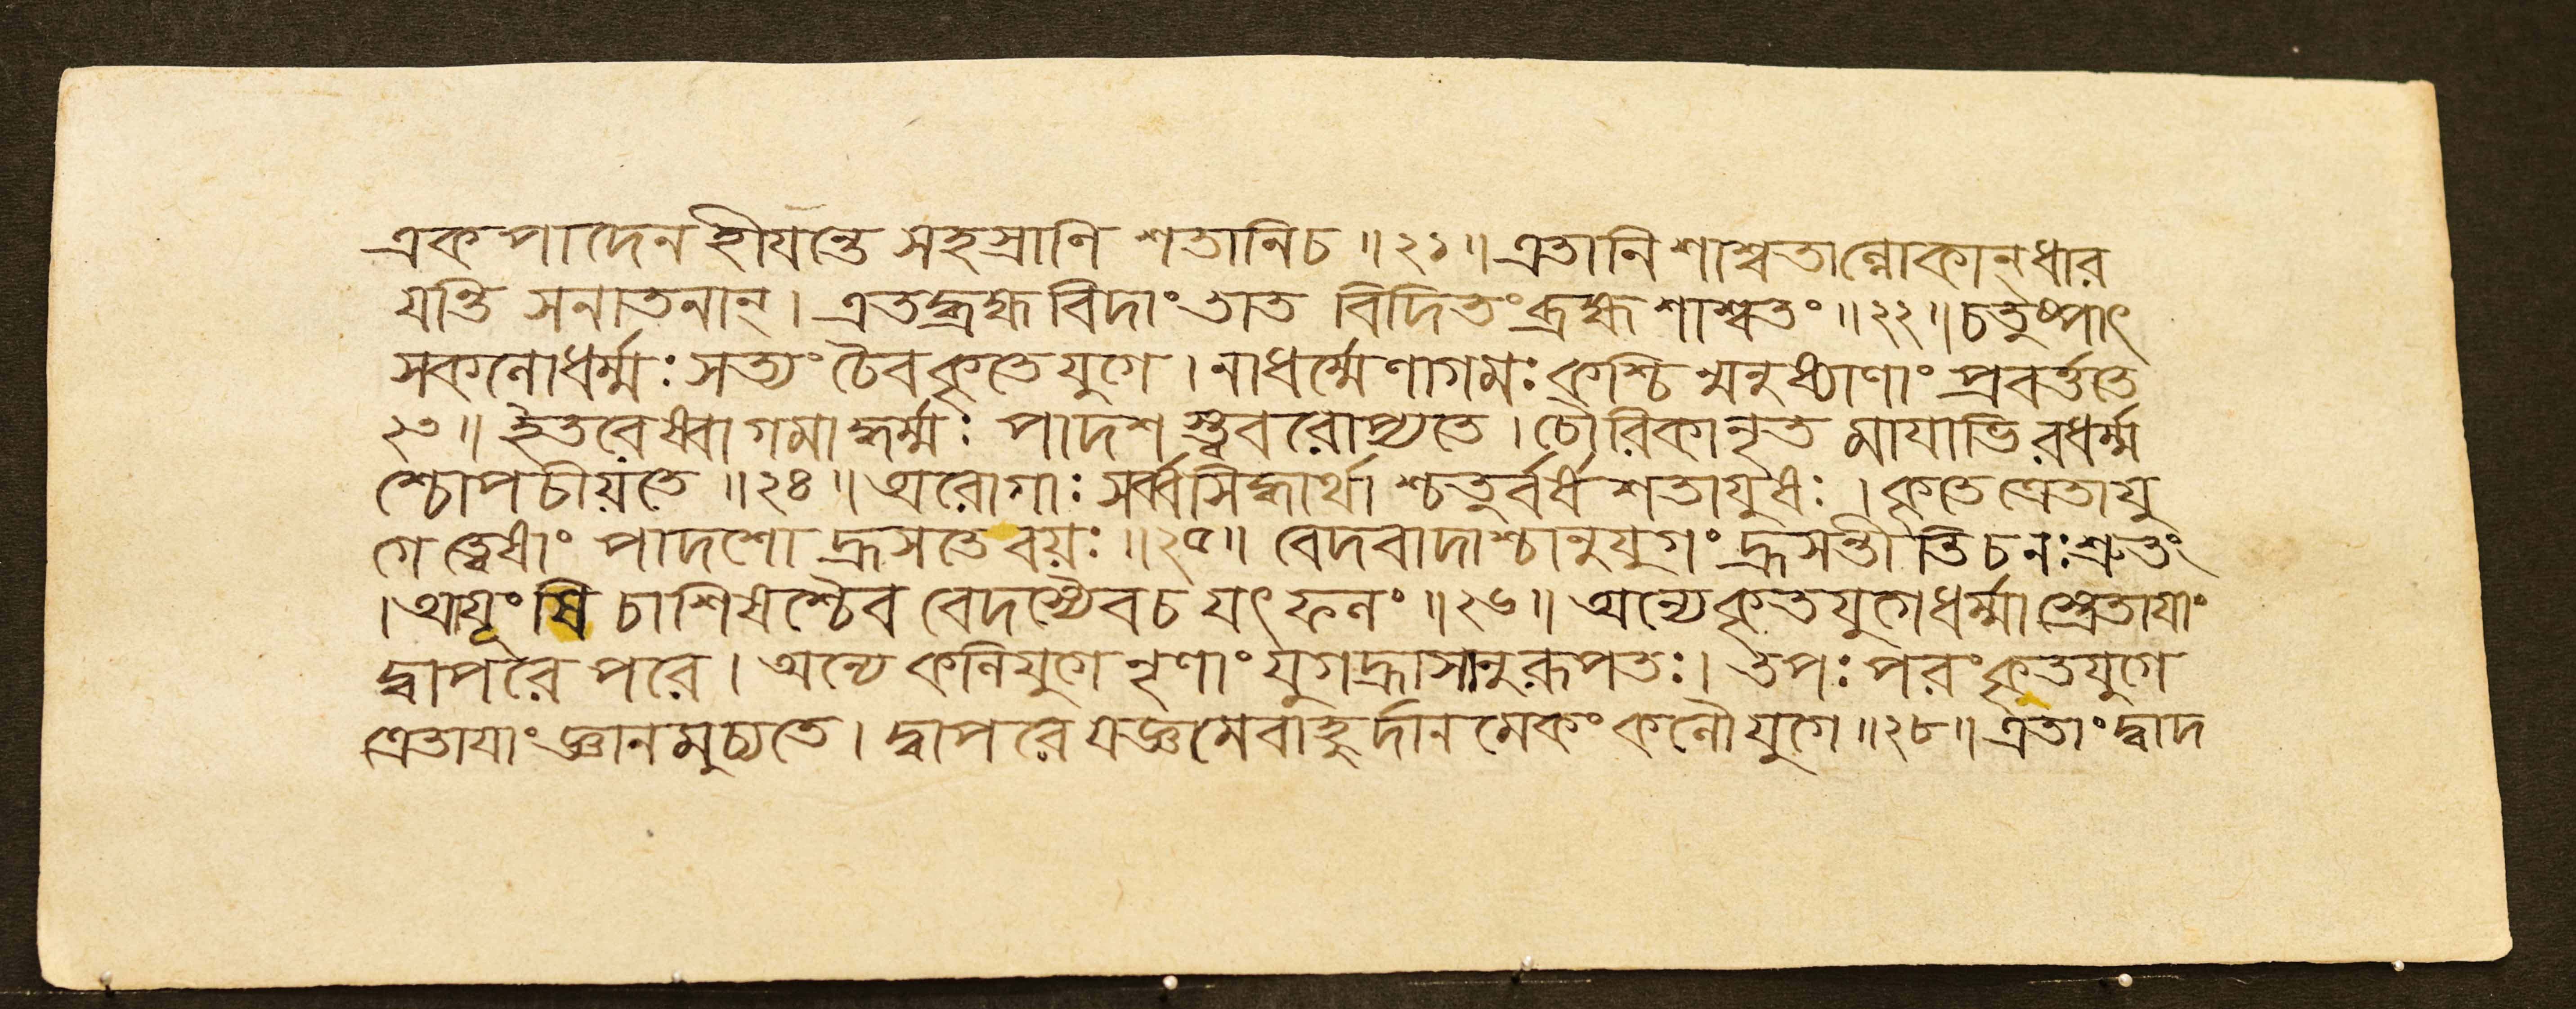 একপাদেন হীযন্তে সহস্রাণি শতানিচ ॥ ২১ ॥ এতানি শাশ্বতাল্লোকান্ ধার
যন্তি সনাতনান্ । এতদ্ব্রহ্মবিদাং তাত বিদিতং ব্রহ্ম শাশ্বতং ॥ ২২ ॥ চতুষ্পাৎ
সকলোধর্ম্মঃ সত্যং চৈব কৃতেযুগে । নাধর্ম্মেণাগমঃ কশ্চিন্মনুষ্যাণাং প্রবর্ত্ততে
২৩ ॥ ইতরেষ্বাগমাদ্ধর্ম্মঃ পাদশস্ত্ববরোপ্যতে । চৌরিকানৃত মাযাভিরধর্ম্ম
শ্চোপচীয়তে ॥ ২৪ ॥ অরোগাঃ সর্ব্বসিদ্ধার্থাশ্চতুর্বর্ষশতাযুষঃ । কৃতে ত্রেতাযু
গে ত্বেষাং পাদশো হ্রসতে বয়ঃ ॥ ২৫ ॥ বেদবাদাশ্চানুযুগং হ্রসন্তীতি চ নঃ শ্রুতং
। আযূংষি চাশিষশ্চৈব বেদস্যৈবচ যৎ ফলং ॥ ২৬ ॥ অন্যে কৃতযুগেধর্ম্মাস্ত্রেতাযাং
দ্বাপরে পরে । অন্যে কলিযুগে নৃণাং যুগহ্রাসানুরূপতঃ । তপঃ পরং কৃতযুগে
ত্রেতাযাং জ্ঞানমুচ্যতে । দ্বাপরে যজ্ঞমেবাহুর্দানমেকং কলৌযুগে ॥ ২৮ ॥ এতাং দ্বাদ